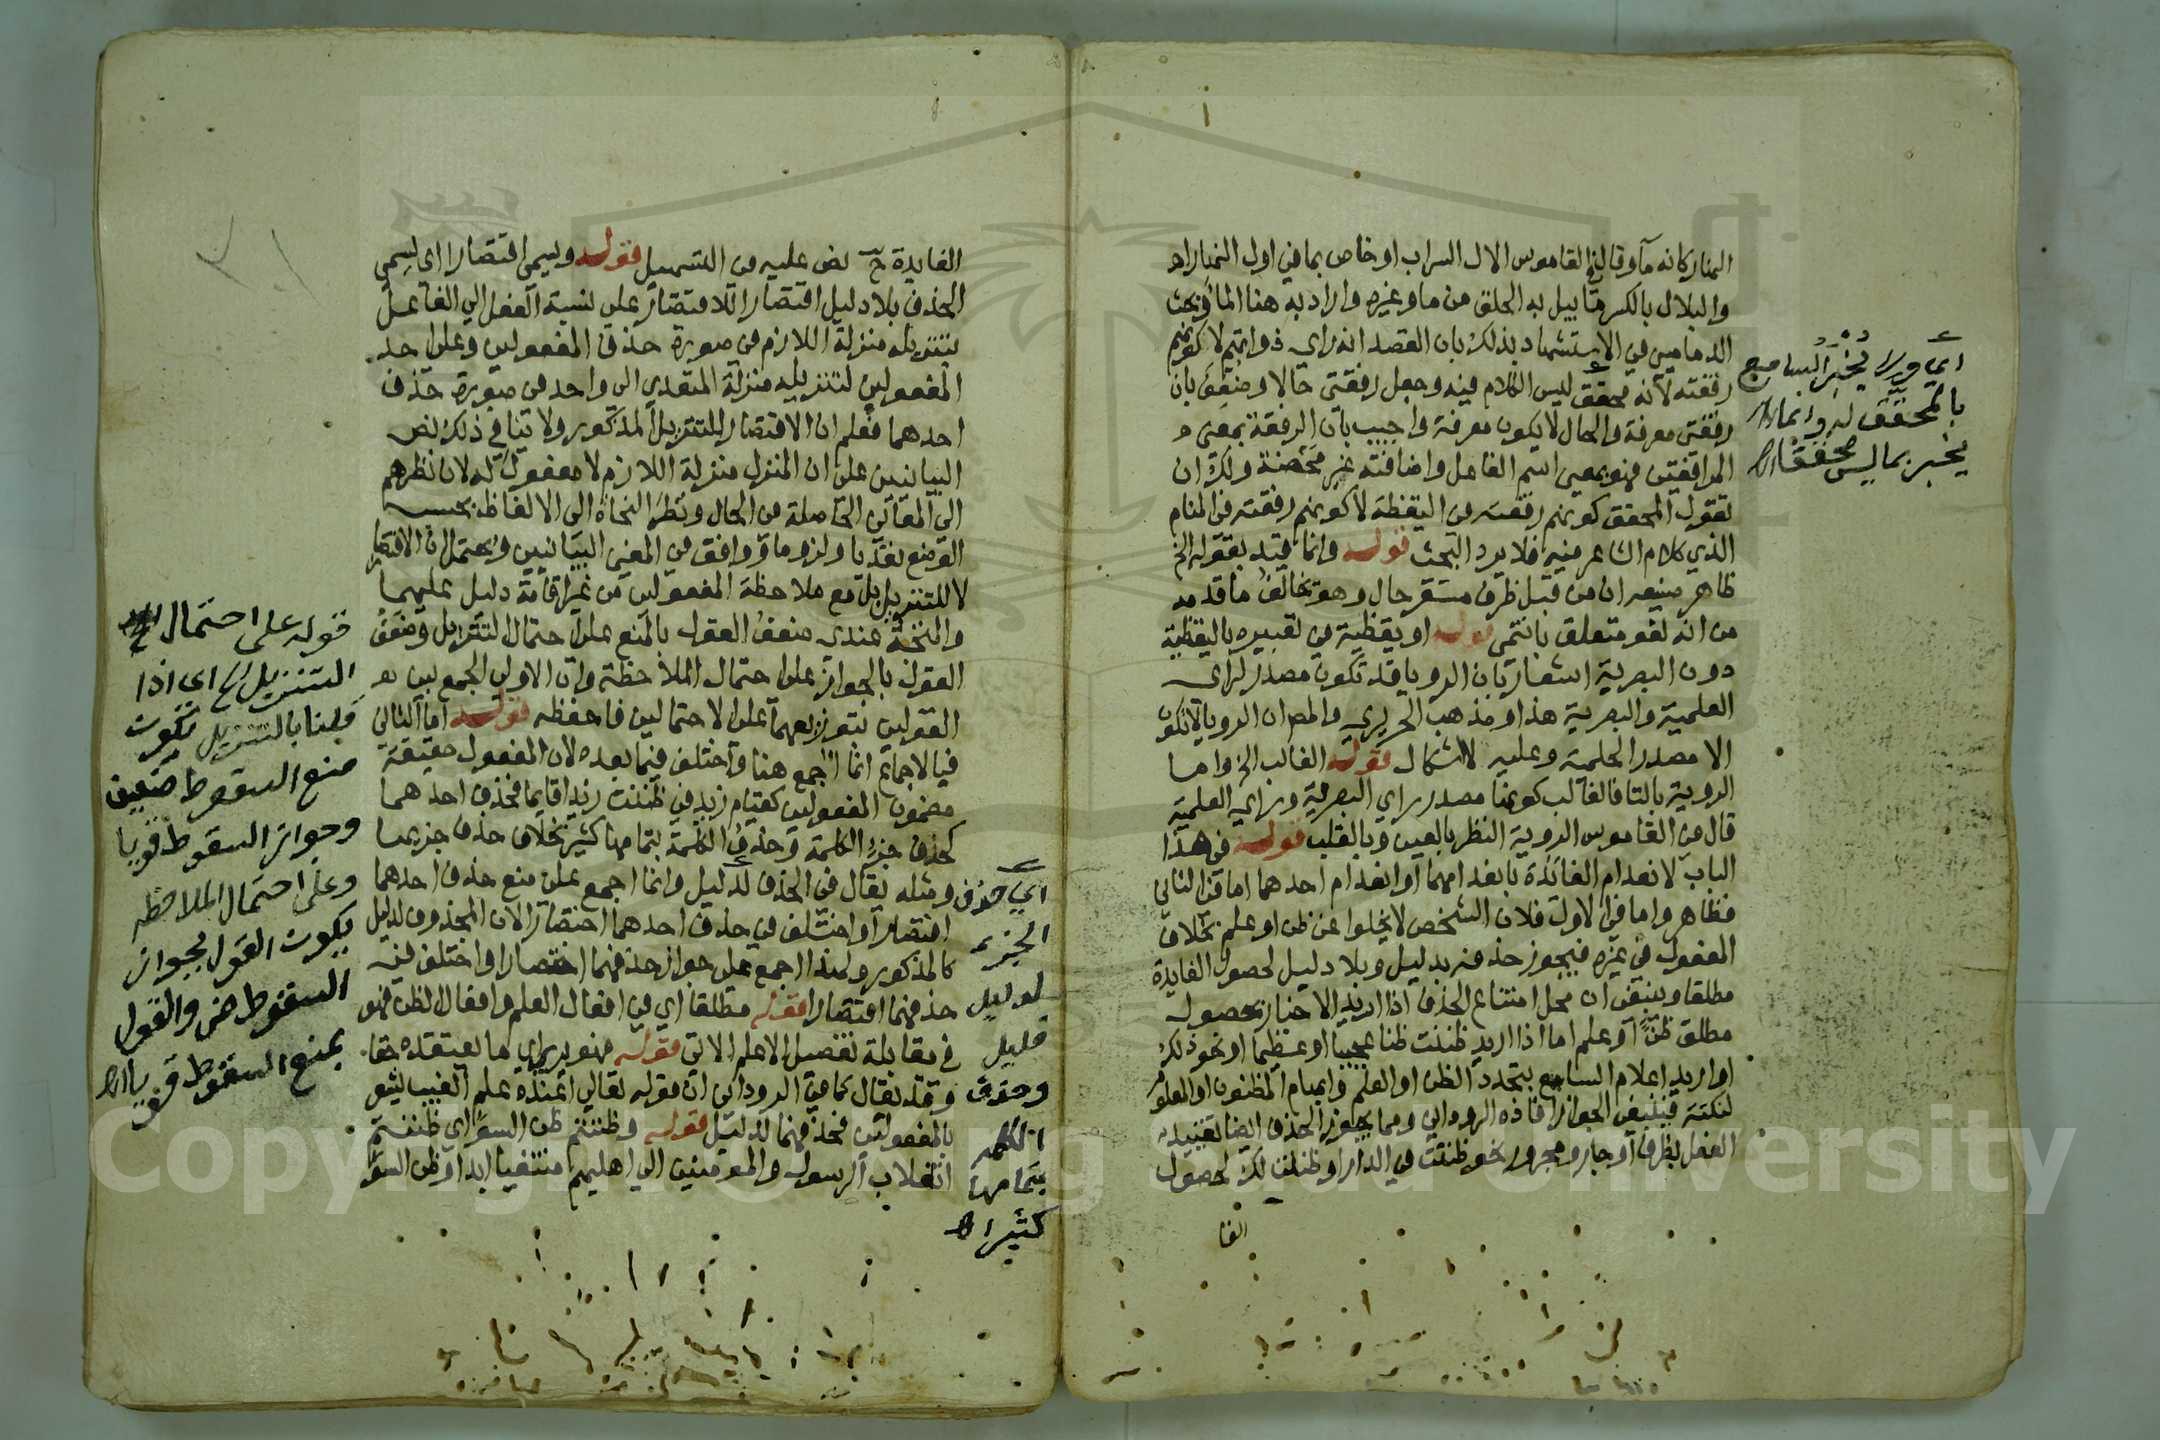 النهار كانه ماء وقال في القاموس الال السراب او خاص بما في اول النهار اه
والبلال بالكسر ما يبل به الحلق من ماء وغيره واراد به هنا الماء وبحث
الدماميني في الاستشهاد بذلك بان القصد انه راي ذواتهم لا كونهم
رفقته لانه محقق ليس الكلام فيه وجعل رفقتي حالا وضعف بان
رفقتي معرفة والحال لا يكون معرفة واجيب بان الرفقة بمعنى
المرافقين فهو بمعنى اسم الفاعل واضافته غير محضة ولك ان
تقول المحقق كونهم رفقته في اليقظة لا كونهم رفقته في المنام
الذي كلام الشاعر فيه فلا يرد البحث قوله وانما قيد بقوله الخ
ظاهر صنيعه ان من قبل ظرف مستقر حال وهو يخالف ما قدمه
من انه لغو متعلق بانتمى قوله او يقظية في تعبيره باليقظية
دون البصرية اشعار بان الرويا قد تكون مصدر لراى
العلمية والبصرية هذا ومذهب الحريري والمص ان الرويا لا تكون
الا مصدر الحلمية وعليه لا اشكال قوله الغالب الخ واما
الروية بالتا فالغالب كونها مصدر راي البصرية وراي العلمية
قال في القاموس الروية النظر بالعين وبالقلب قوله في هذا
الباب لانعدام الفائدة بانعدامهما او انعدام احدهما اما في الثاني
فظاهر واما في الاول فلان الشخص لا يخلوا عن ظن او علم بخلاف
المفعول في غيره فيجوز حذفه بدليل وبلا دليل لحصول الفايدة
مطلقا وينبغي ان محل امتناع الحذف اذا اريد الاخبار بحصول
مطلق ظن او علم اما اذا اريد ظننت ظنا عجيبا او عظيما او نحو ذلك
او اريد اعلام السامع بتجدد الظن او العلم وابهام المظنون او المعلوم
لنكتة فينبغي الجواز افاده الروداني ومما يجوز الحذف ايضا تقييد
الفعل بظرف او جار ومجرور نحو ظننت في الدار او ظننت لك لحصول
الفا
اي ولا يخبر السامع
بالمحقق له وانما
يخبر بما ليس محققا اه
الفايدة ح نص عليه في التسهيل قوله ويسمى اقتصارا اي يسمى
الحذف بلا دليل اقتصارا للاقتصار على نسبة الفعل الي الفاعل
بتنزيله منزلة اللازم في صورة حذف المفعولين وعلى احد
المفعولين لتنزيله منزلة المتعدي الى واحد في صورة حذف
احدهما فعلم ان الاقتصار للتنزيل المذكور ولا ينافي ذلك نص
البيانيين على ان المنزل منزلة اللازم لا مفعول له لان نظرهم
الى المعاني الحاصلة في الحال ونظر النحاة الى الالفاظ بحسب
الوضع تعديا ولزوما ووافق في المغني البيانيين ويحتمل ان الاقتصار
لا للتنزيل بل مع ملاحظة المفعولين من غير اقامة دليل عليهما
والمتجه عندى ضعف القول بالمنع على احتمال التنزيل وضعف
القول بالجواز على احتمال الملاحظة وان الاولى الجمع بين
القولين بتوزيعهما على الاحتمالين فاحفظه قوله اما الثاني
فبالاجماع انما اجمع هنا واختلف فيما بعده لان المفعول حقيقة
مضمون المفعولين كقيام زيد في ظننت زيدا قايما فحذف احدهما
كحذف جزء الكلمة وحذف الكلمة بتمامها كثير بخلاف حذف جزيها
ومثله يقال في الحذف لدليل وانما اجمع على منع حذف احدهما
اقتصارا واختلف في حذف احدهما اختصارا لان المحذوف لدليل
كالمذكور ولهذا اجمع على جواز حذفهما اختصارا واختلف في
حذفهما اقتصارا قوله مطلقا اي في افعال العلم وافعال الظن فهو
في مقابلة تفصيل الاعلم الاتي قوله فهو يرى اي ما يعتقده حقا
وقد يقال كما في الروداني ان قوله تعالي اعنده علم الغيب يشعر
بالمفعولين فحذفهما لدليل قوله وظننتم ظن السوء اي ظننتم
انقلاب الرسول والمومنين الي اهليهم منتفيا ابدا وظن السوء
قوله على احتمال
التنزيل الخ اي اذا
قلنا بالتنزيل يكون
منع السقوط ضعيف
وجواز السقوط قويا
وعلى احتمال الملاحظه
يكون القول بجواز
السقوط ض والقول
بمنع السقوط قويا اه
اي حذف
الجزء
لدليل
قليل
وحذف
الكلمه
بتمامها
كثير اه
Copyright © King Saud University